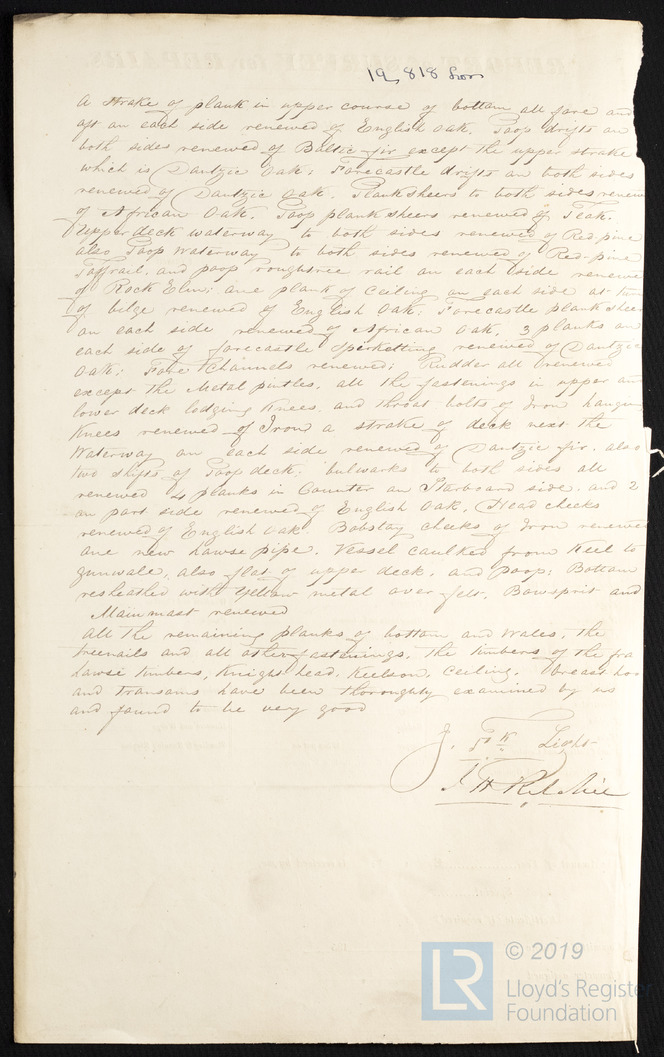 19,818 Lon
A strake of plank in upper course of bottom all fore and
aft on each side renewed of English Oak. Poop drifts on
both sides renewed of Baltic fir except the upper strake
which is Dantzic Oak: Forecastle drifts on both sides
renewed of Dantzic Oak. Planksheers to both sides renew
of African Oak. Poop planksheers renewed of Teak.
Upper deck waterway to both sides renewed of Red-pine
also Poop Waterway to both sides renewed of Red-pine
Taffrail, and poop roughtree rail on each side renewe
of Rock Elm: one plank of Ceiling on each side at turn
of bilge renewed of English Oak: Forecastle planksheer
on each side renewed of African Oak, 3 planks on
each side of forecastle Sperketting renewed of Dantzic
Oak: Fore Channels renewed: Rudder all renewed
except the Metal pintles, all the fastenings in upper an
lower deck lodging Knees, and throat bolts of Iron hanging
Knees renewed of Iron a strake of deck next the
Waterway on each side renewed of Dantzic fir. also
two shifts of Poop deck. bulwarks to both sides all
renewed 4 planks in Counter on Starboard side, and 2
on port side renewed of English Oak, Head cheeks
renewed of English Oak. Bobstay cheeks of Iron renewed
one new hawse pipe. Vessel caulked from Keel to
gunwale, also flat of upper deck, and poop: Bottom
resheathed with Yellow metal over felt, Bowsprit and
Mainmast renewed
All the remaining planks of bottom and Wales, the
treenails and all other fastenings, the timbers of the fra
hawse timbers, Knight head, Keelson, Ceiling, breast hoo
and transoms have been thoroughly examined by us
and found to be very good
J. Light
J H Ritchie
LR
© 2019
Lloyd's Register
Foundation